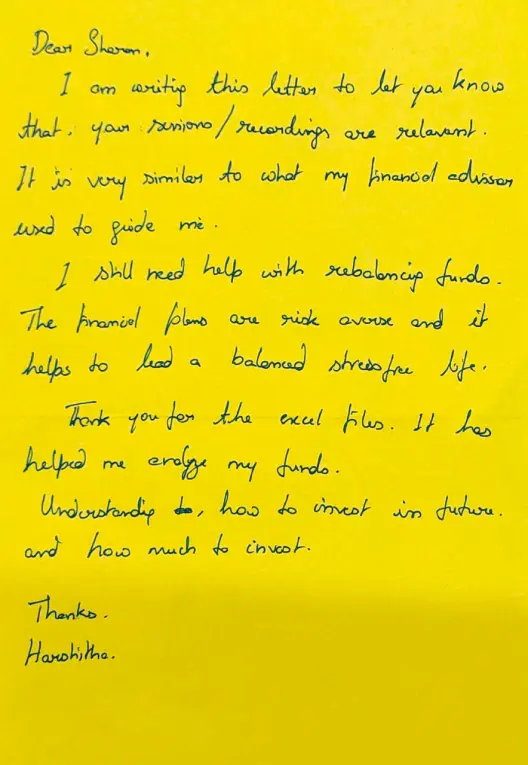 Dear Sharon,
I am writing this letter to let you know
that, your sessions/recordings are relavant.
It is very similar to what my financial advisor
used to guide me.
I still need help with rebalancing funds.
The financial plans are risk averse and it
helps to lead a balanced stress free life.
Thank you for the excel files. It has
helped me analyze my funds.
Understanding to, how to invest in future.
and how much to invest.
Thanks.
Harshitha.